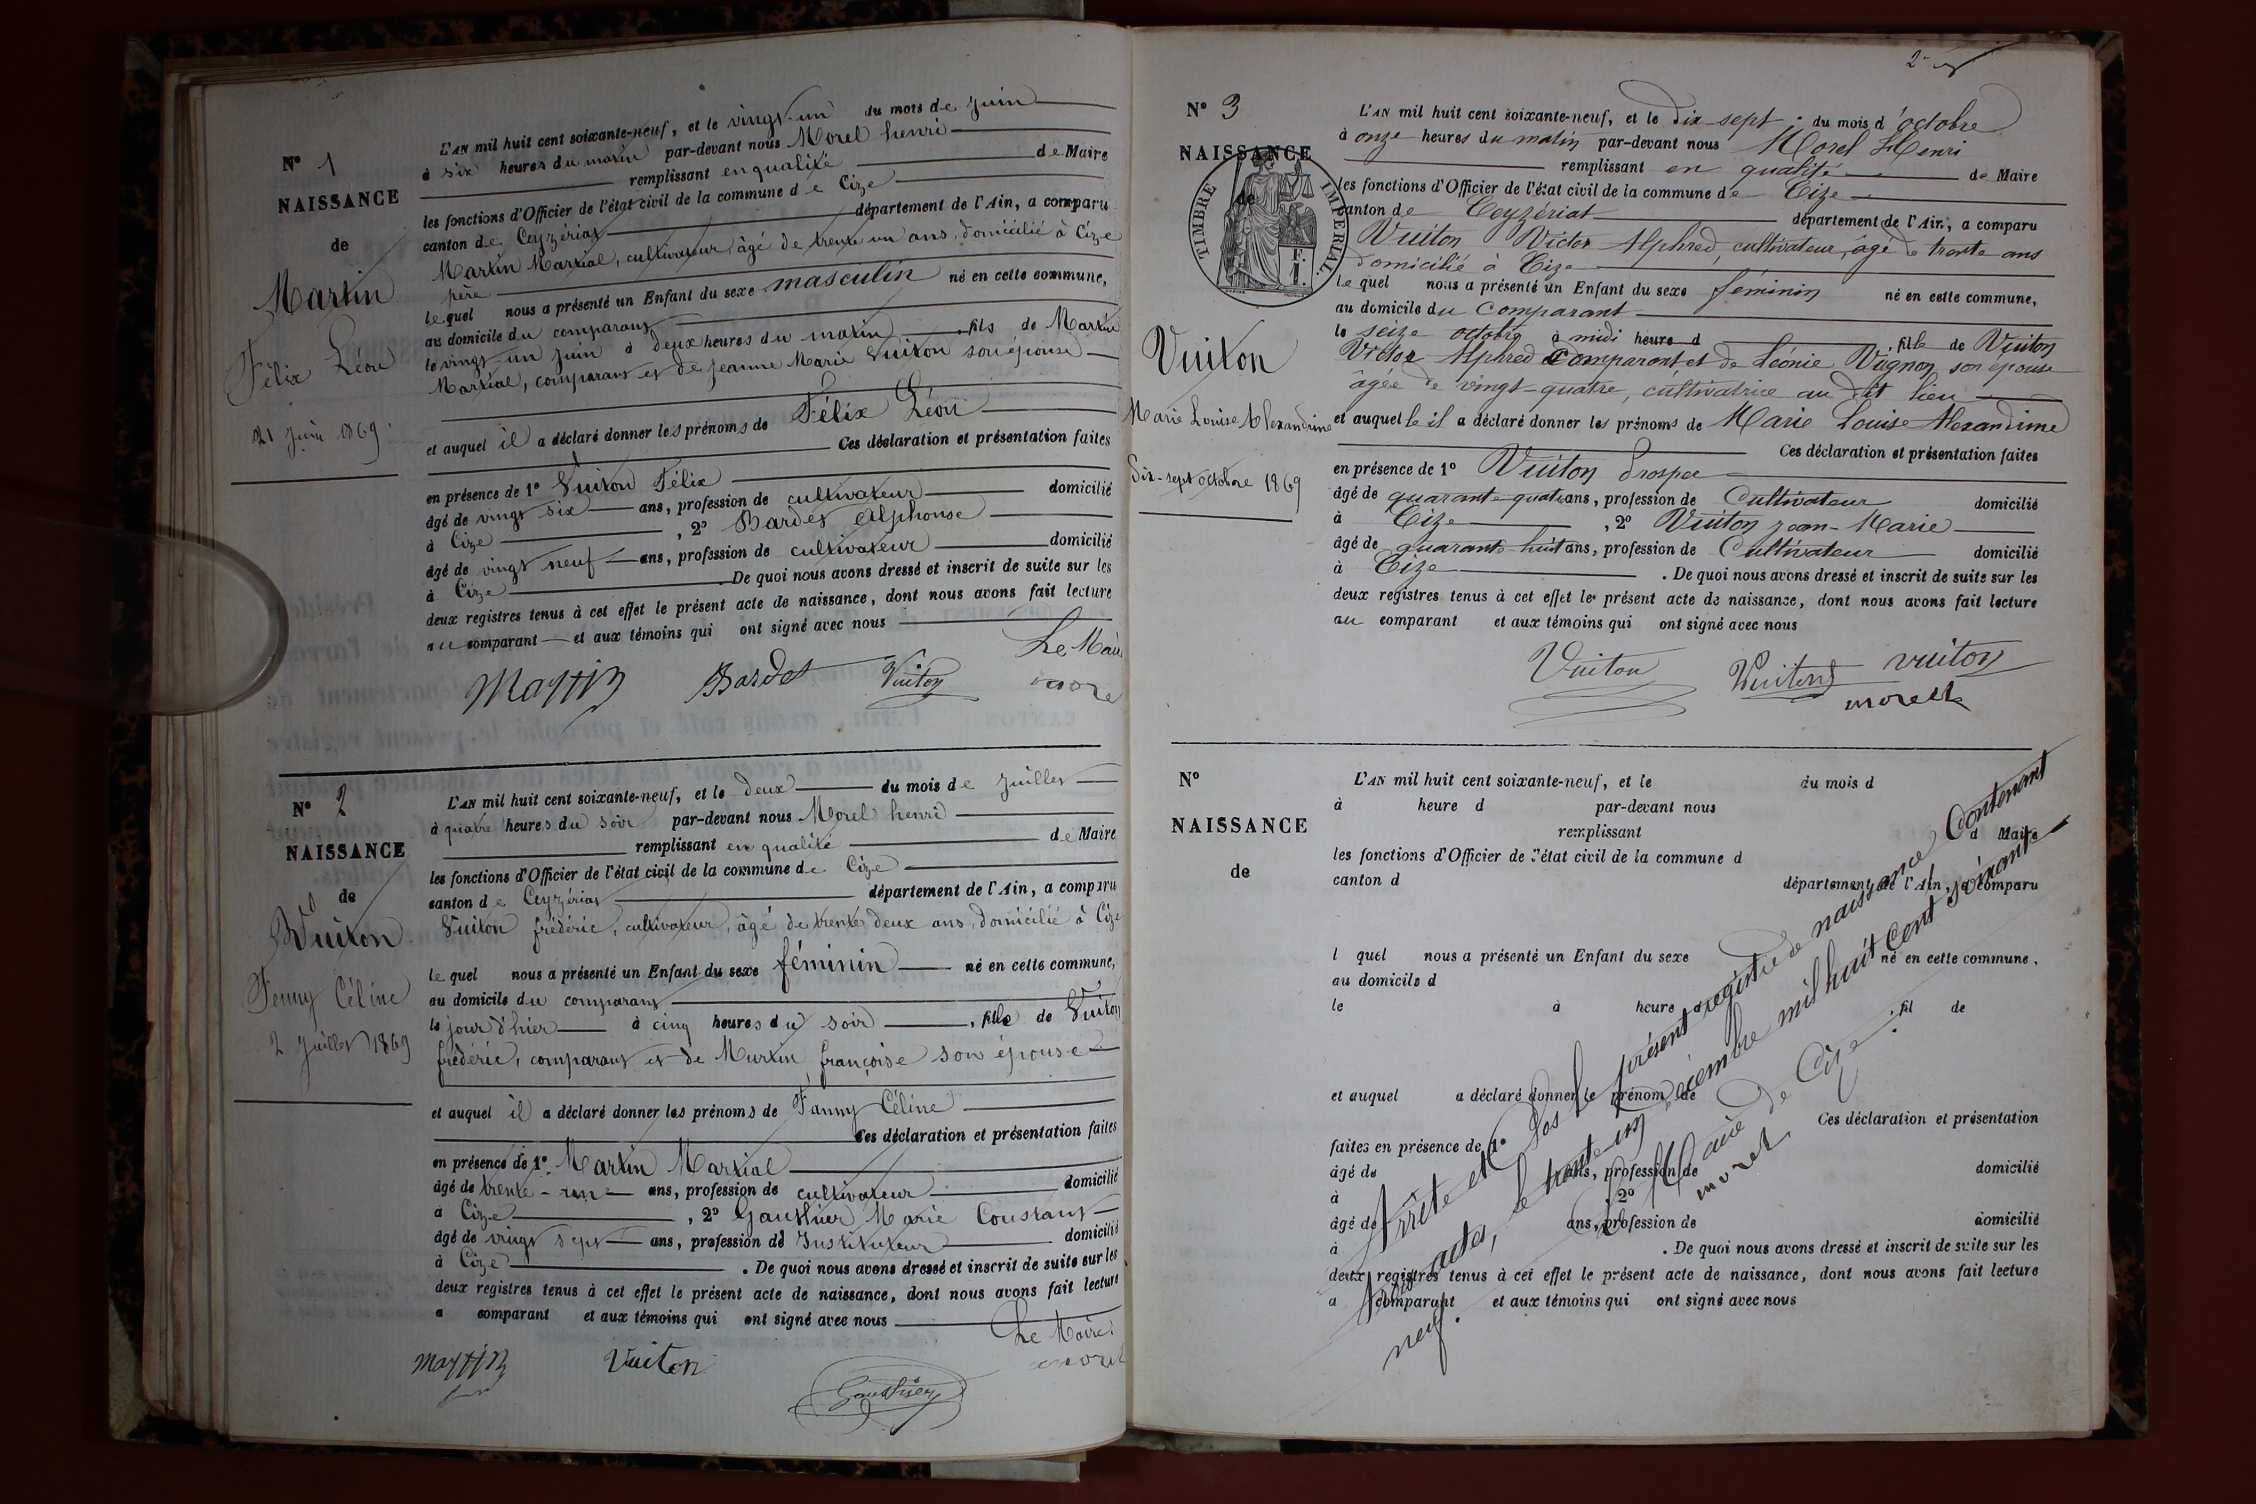 N° 1
NAISSANCE
de
Martin
Félix Léon
21 Juin 1869
L'AN mil huit cent soixante-neuf, et le vingt-un du mois de Juin
à six heures du matin par-devant nous Morel henri
remplissant en qualité de Maire
les fonctions d'Officier de l'état civil de la commune de Cize
canton de Ceyzériat département de l'Ain, a comparu
Martin Martial, cultivateur, âgé de trente un ans, domicilié à Cize
père
lequel nous a présenté un Enfant du sexe masculin né en cette commune,
au domicile du comparant
le vingt-un juin à deux heures du matin, fils de Martin
Martial, comparant et de Jeanne Marie Vuiton son épouse
et auquel il a déclaré donner les prénoms de Félix Léon
Ces déclaration et présentation faites
en présence de 1° Vuiton Félix
âgé de vingt six ans, profession de cultivateur domicilié
à Cize, 2° Bardet Alphonse
âgé de vingt neuf ans, profession de cultivateur domicilié
à Cize. De quoi nous avons dressé et inscrit de suite sur les
deux registres tenus à cet effet le présent acte de naissance, dont nous avons fait lecture
au comparant et aux témoins qui ont signé avec nous
Le Maire
Martin Bardet Vuiton morel
N° 2
NAISSANCE
de
Vuiton
Fanny Céline
2 Juillet 1869
L'AN mil huit cent soixante-neuf, et le deux du mois de Juillet
à quatre heures du soir par-devant nous Morel henri
remplissant en qualité de Maire
les fonctions d'Officier de l'état civil de la commune de Cize
canton de Ceyzériat département de l'Ain, a comparu
Vuiton frédéric, cultivateur, âgé de trente deux ans, domicilié à Cize
lequel nous a présenté un Enfant du sexe féminin né en cette commune,
au domicile du comparant
le jour d'hier à cinq heures du soir, fille de Vuiton
frédéric, comparant et de Martin françoise son épouse
et auquel il a déclaré donner les prénoms de Fanny Céline
Ces déclaration et présentation faites
en présence de 1° Martin Martial
âgé de trente-un ans, profession de cultivateur domicilié
à Cize, 2° Gauthier Marie Constant
âgé de vingt sept ans, profession de Instituteur domicilié
à Cize. De quoi nous avons dressé et inscrit de suite sur les
deux registres tenus à cet effet le présent acte de naissance, dont nous avons fait lecture
a comparant et aux témoins qui ont signé avec nous
Le Maire
martin Vuiton Gauthier morel
2
N° 3
NAISSANCE
de
TIMBRE IMPÉRIAL
Vuiton
Marie Louise Alexandrine
Dix-sept octobre 1869
L'AN mil huit cent soixante-neuf, et le dix-sept du mois d'octobre
à onze heures du matin par-devant nous Morel Henri
remplissant en qualité de Maire
les fonctions d'Officier de l'état civil de la commune de Cize
canton de Ceyzériat département de l'Ain, a comparu
Vuiton Victor Alphred, cultivateur, âgé de trente ans
domicilié à Cize
lequel nous a présenté un Enfant du sexe féminin né en cette commune,
au domicile du comparant
le seize octobre à midi heure d, fille de Vuiton
Victor Alphred comparant et de Léonie Vugnon son épouse
âgée de vingt-quatre, cultivatrice au dit lieu
et auquelle il a déclaré donner les prénoms de Marie Louise Alexandrine
Ces déclaration et présentation faites
en présence de 1° Vuiton Prosper
âgé de quarante-quatre ans, profession de Cultivateur domicilié
à Cize, 2° Vuiton jean-Marie
âgé de quarante-huit ans, profession de Cultivateur domicilié
à Cize. De quoi nous avons dressé et inscrit de suite sur les
deux registres tenus à cet effet le présent acte de naissance, dont nous avons fait lecture
au comparant et aux témoins qui ont signé avec nous
Vuiton Vuiton vuiton
morel
N°
NAISSANCE
de
L'AN mil huit cent soixante-neuf, et le du mois d
à heure d par-devant nous
remplissant d Maire
les fonctions d'Officier de l'état civil de la commune d
canton d département de l'Ain, a comparu
l quel nous a présenté un Enfant du sexe né en cette commune,
au domicile d
le à heure d, fil de
et auquel a déclaré donner le prénom de
Ces déclaration et présentation
faites en présence de 1°
âgé de ans, profession de domicilié
à , 2°
âgé de ans, profession de domicilié
à . De quoi nous avons dressé et inscrit de suite sur les
deux registres tenus à cet effet le présent acte de naissance, dont nous avons fait lecture
a comparant et aux témoins qui ont signé avec nous
Arrêté et Clos le présent registre de naissance Contenant
trois actes, le trente un Décembre mil huit cent soixante
neuf.
Le Maire de Cize.
morel